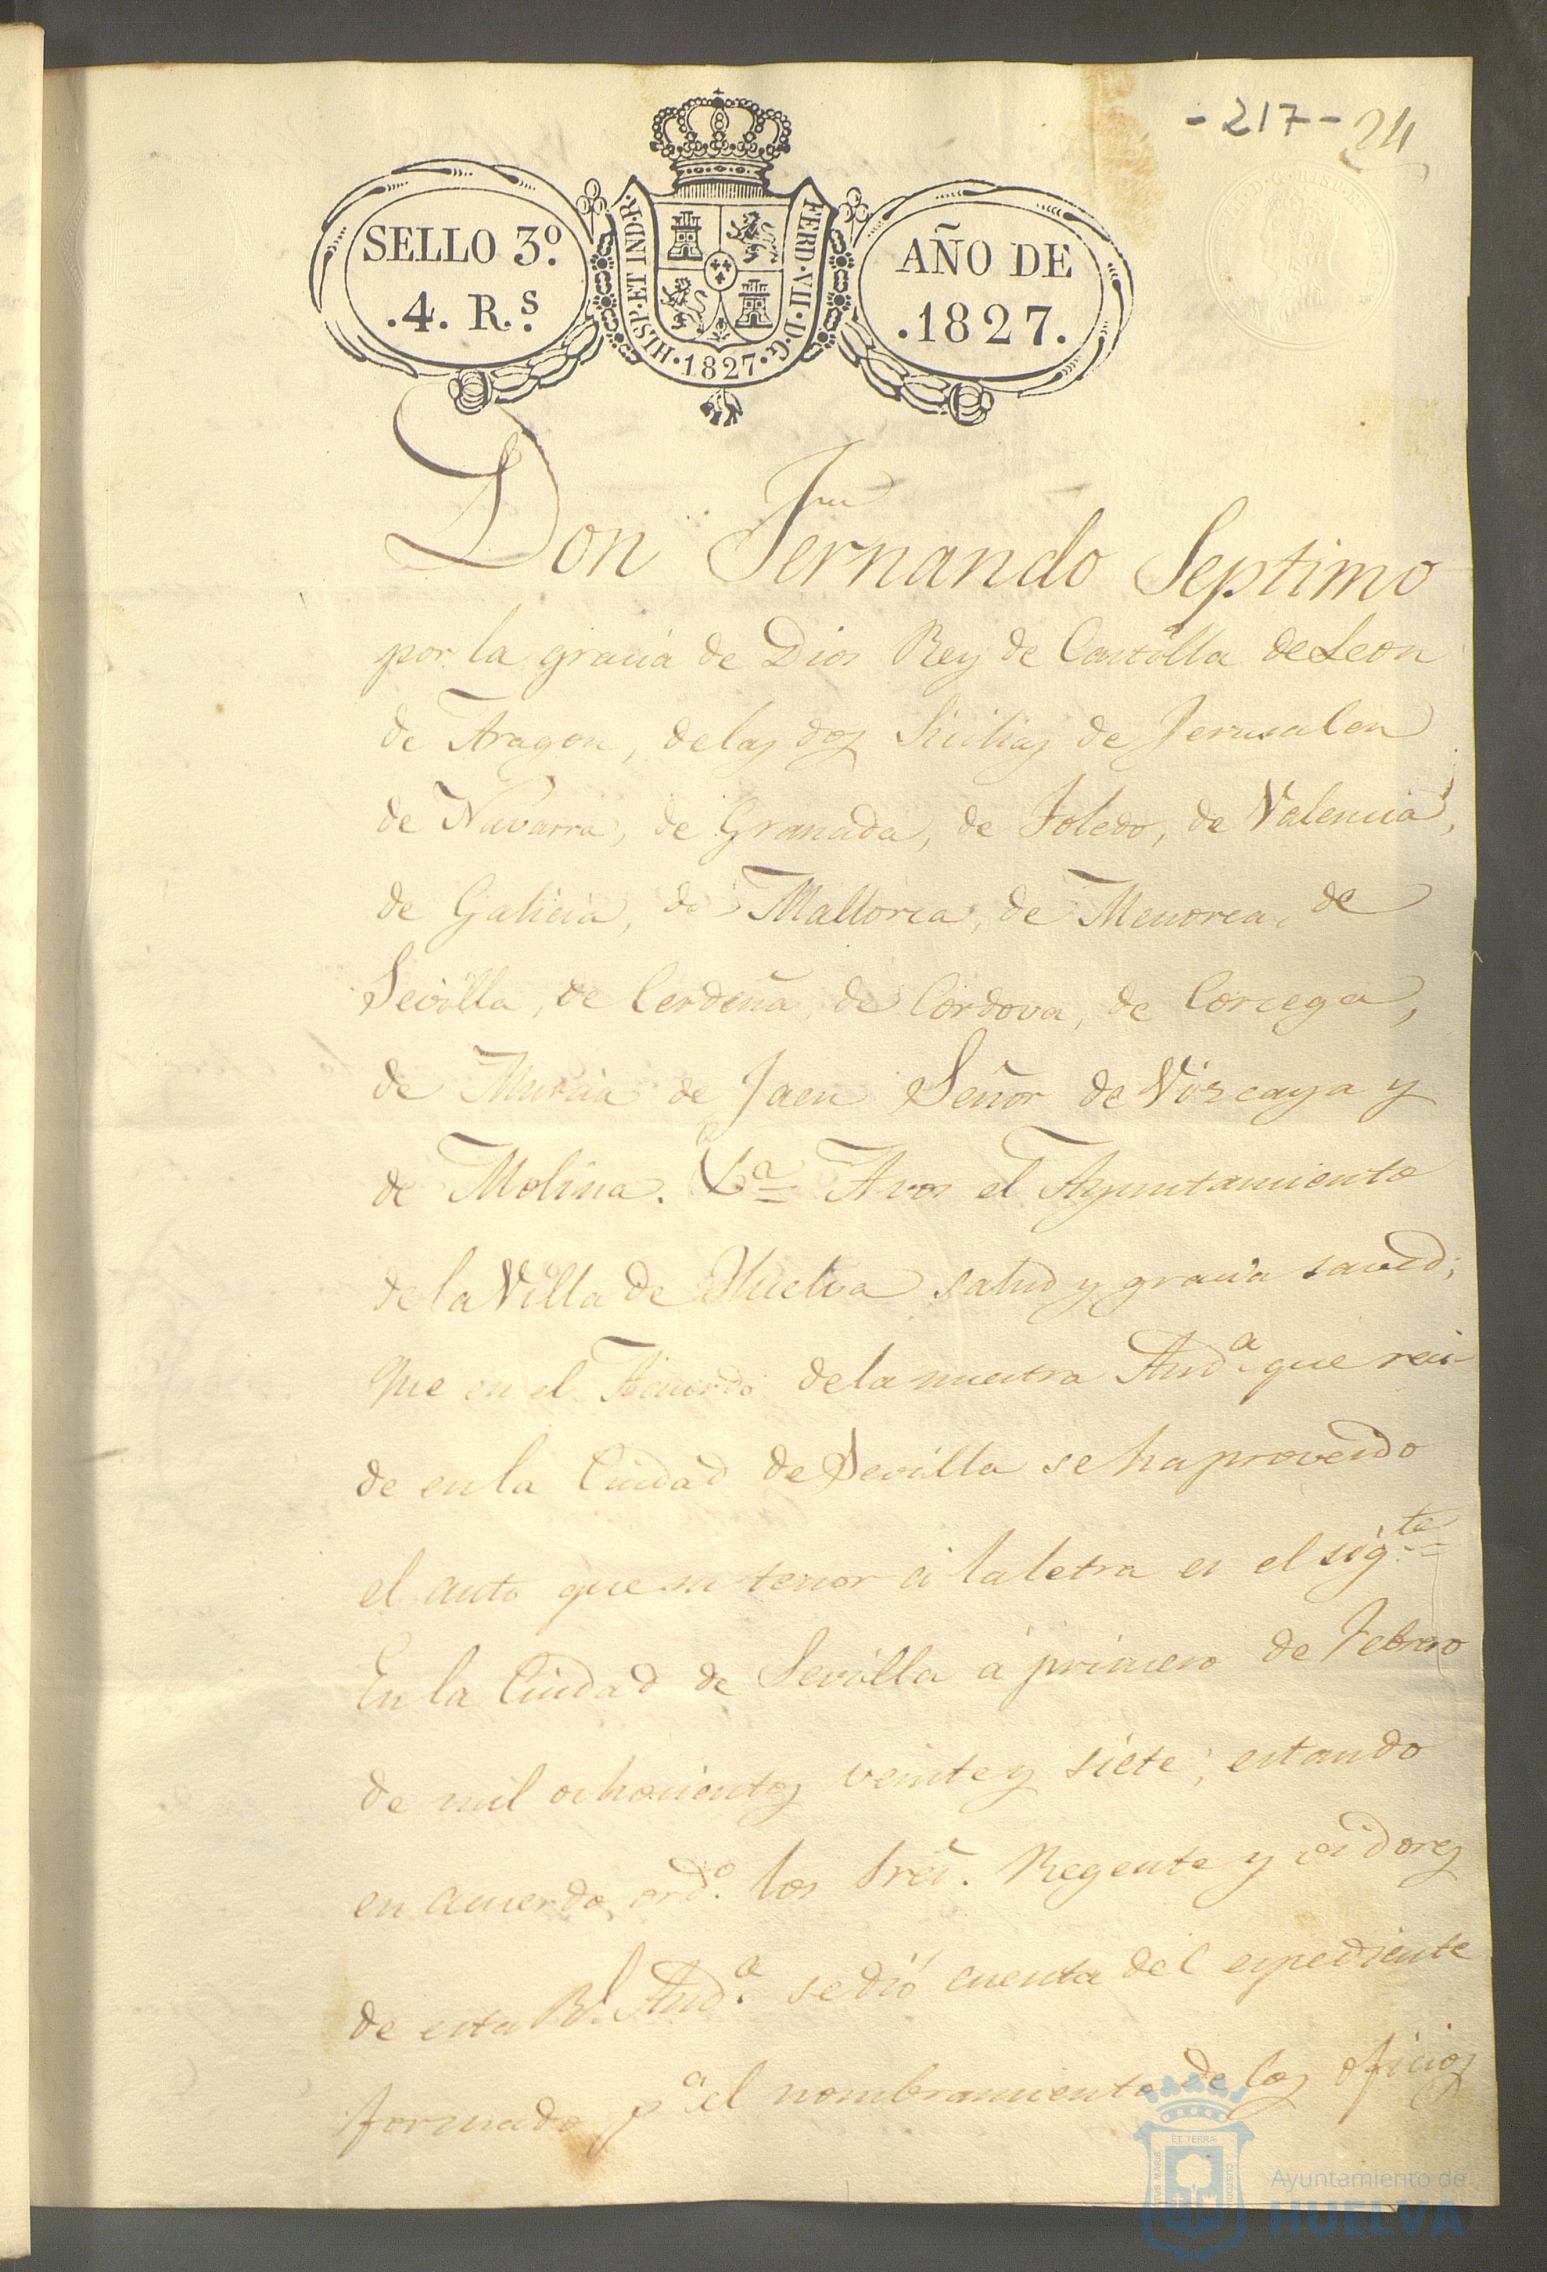 - 217 - 24
SELLO 3º.
.4. R.s
HISP. ET IND. R. FERD. VII. D. G. 1827.
AÑO DE
.1827.
Don Fernando Septimo
por la gracia de Dios Rey de Castilla de Leon
de Aragon, de las dos Sicilias de Jerusalen
de Navarra, de Granada, de Toledo, de Valencia,
de Galicia, de Mallorca, de Menorca, de
Sevilla, de Cerdeña, de Cordova, de Corcega,
de Murcia de Jaen Señor de Vizcaya y
de Molina. &ª A vos el Ayuntamiento
de la Villa de Huelva salud y gracia saved;
Que en el Acuerdo de la nuestra Audª que reci-
de en la Ciudad de Sevilla se ha proveido
el auto que su tenor á la letra es el sigte
En la Ciudad de Sevilla á primero de Febrero
de mil ochocientos veinte y siete; estando
en acuerdo ordº los Sres. Regente y oidores
de esta Rl. Audª se dió cuenta del espediente
formado pª el nombramiento de los oficios
Ayuntamiento de
HUELVA